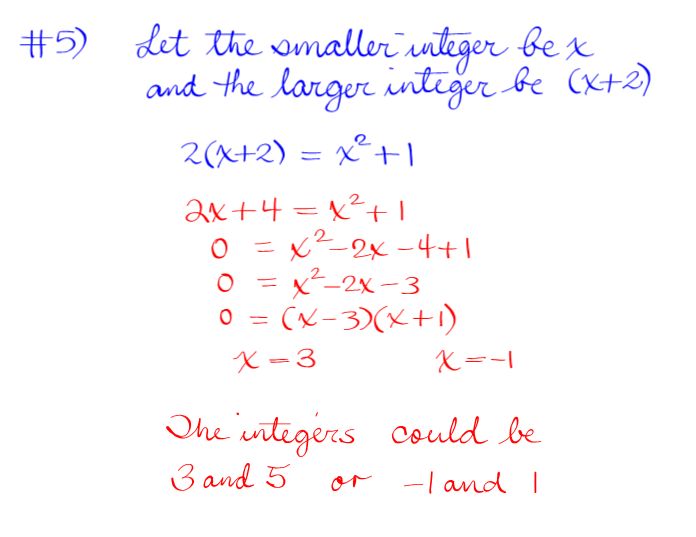 #5) Let the smaller integer be x
and the larger integer be (x+2)
2(x+2) = x²+1
2x+4 = x²+1
0 = x²-2x-4+1
0 = x²-2x-3
0 = (x-3)(x+1)
x=3 x=-1
The integers could be
3 and 5 or -1 and 1